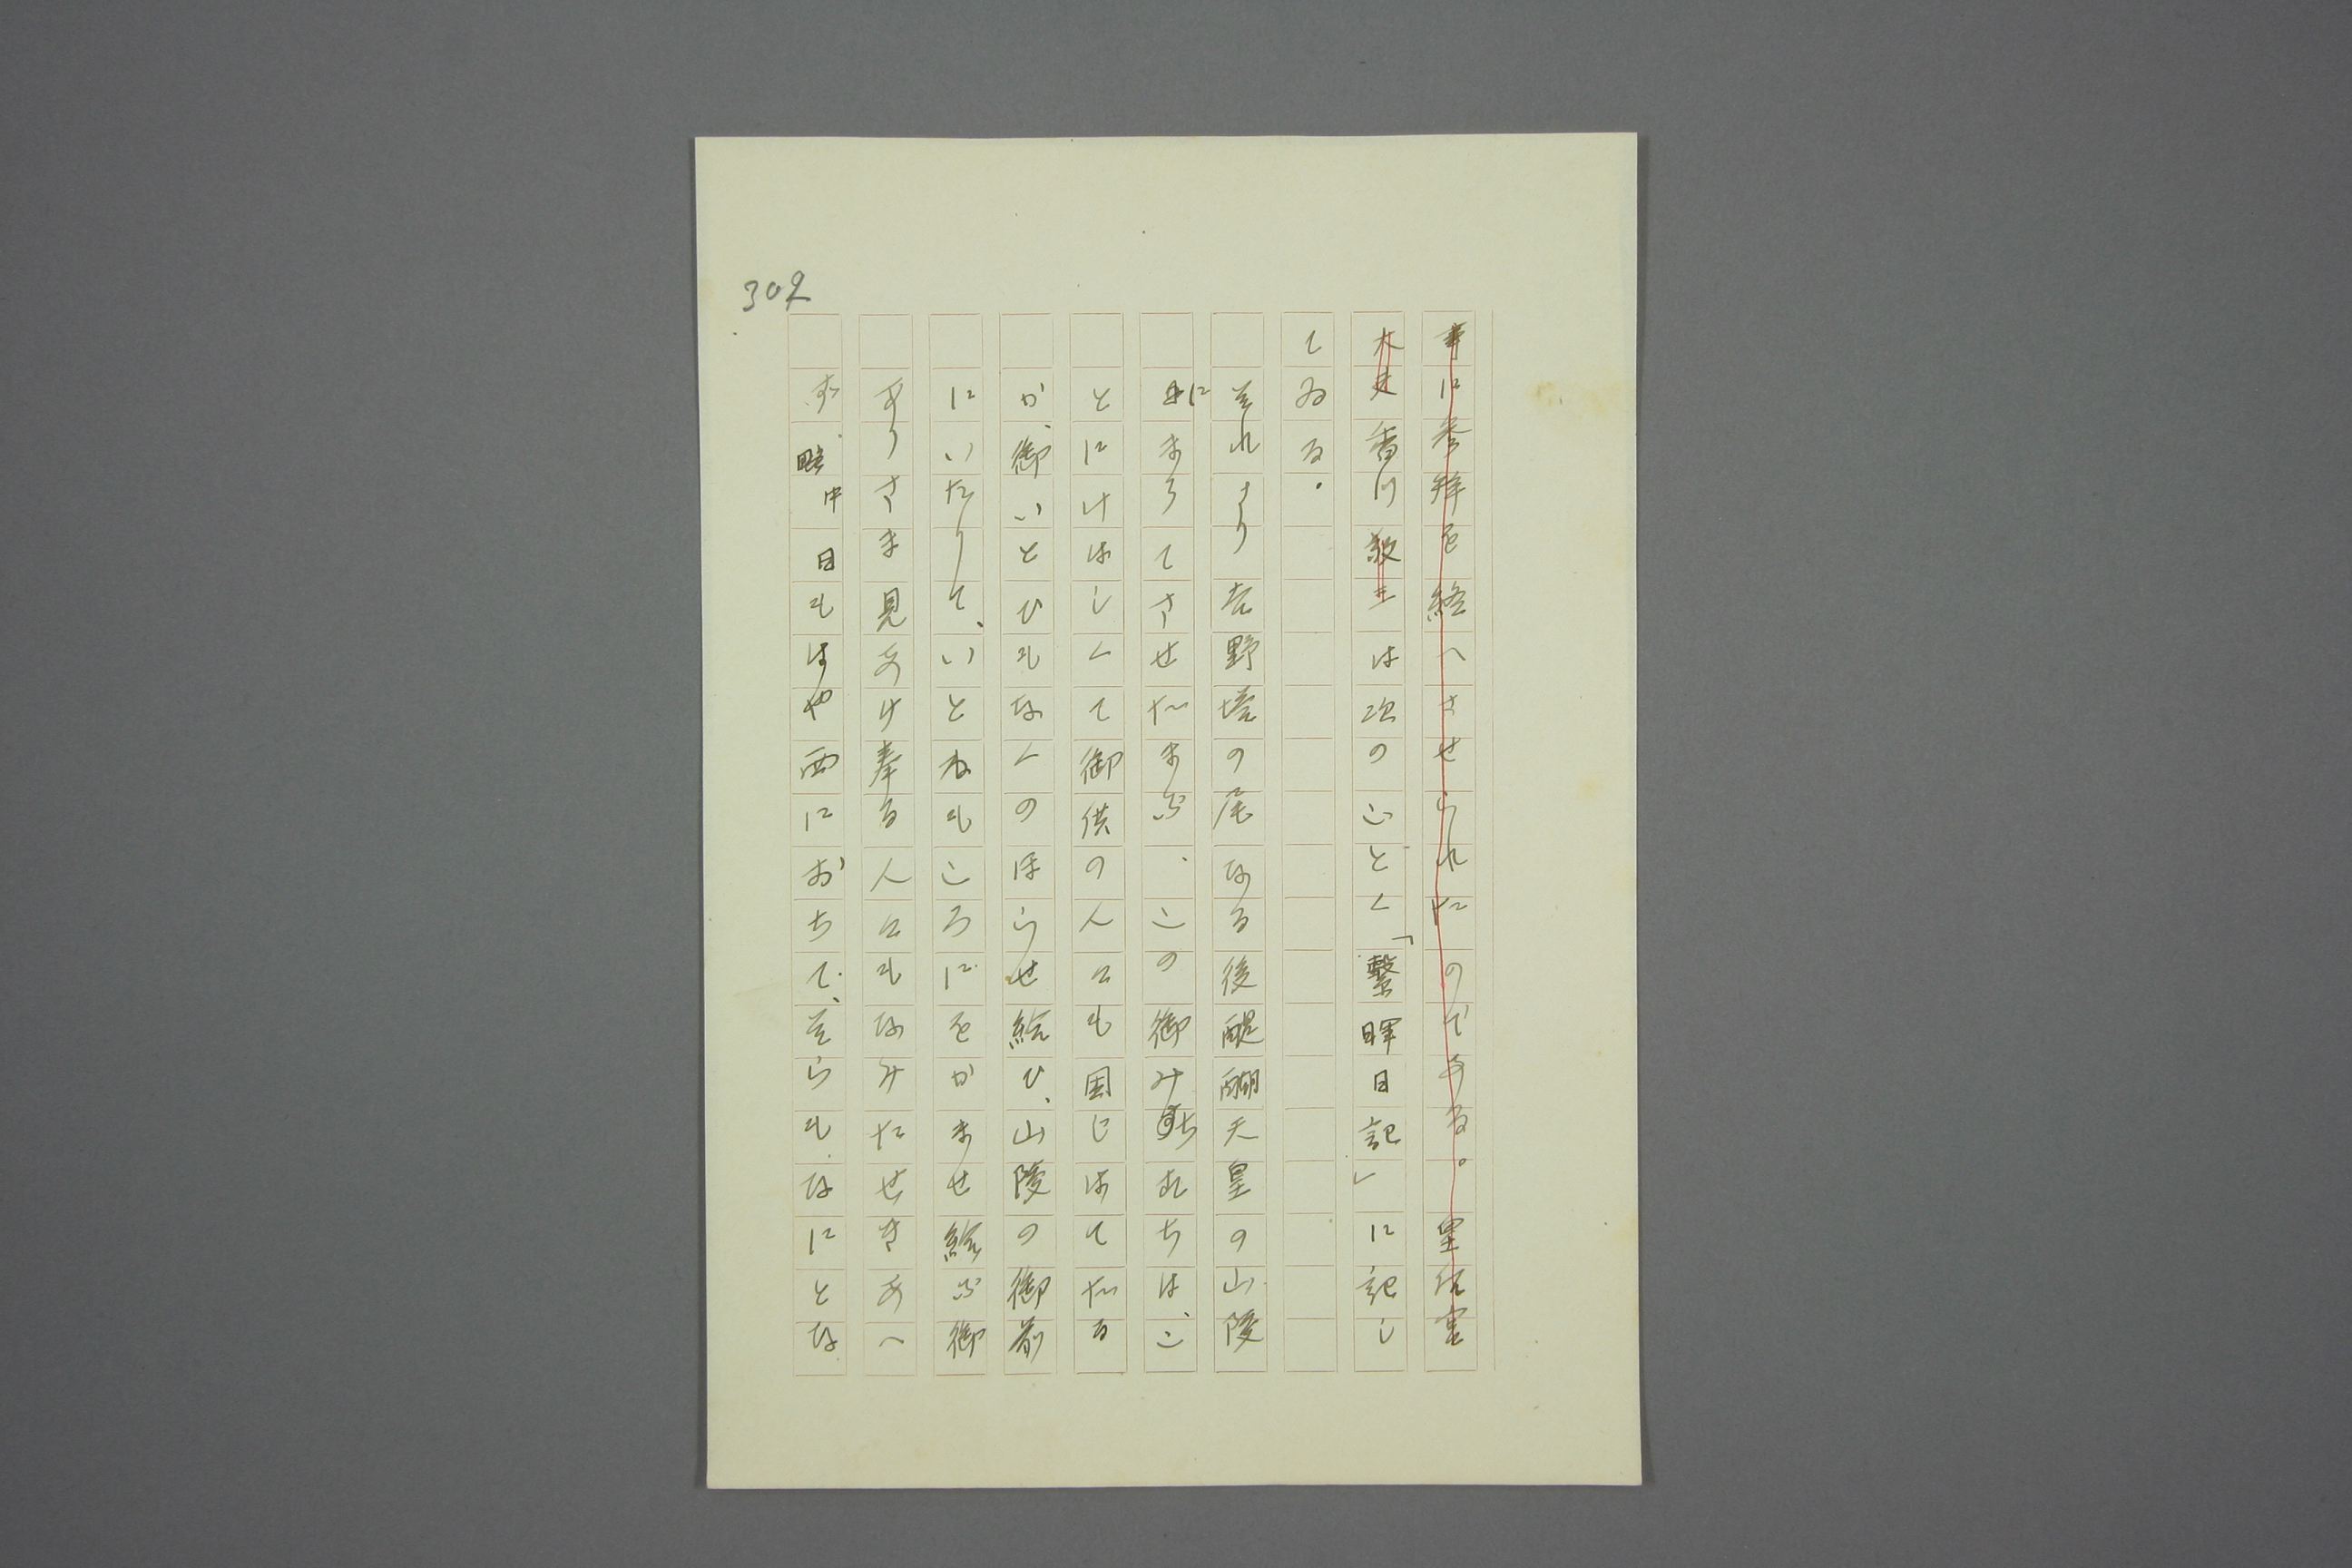 302
事に参拝を終へさせられたのである。皇后宮
大夫香川敬三は次のごとく「繫暉日記」に記し
てゐる。
それより吉野塔の尾なる後醍醐天皇の山陵
にまうてさせたまふ、この御みちすちは、こ
とにけはしくて御供の人々も困じはてたる
か、御いとひもなくのほらせ給ひ、山陵の御前
にいたりて、いとねもころにをかませ給ふ御
ありさま見あけ奉る人々もなみたせきあへ
す、略中 日もはや西におちて、そらもなにとな